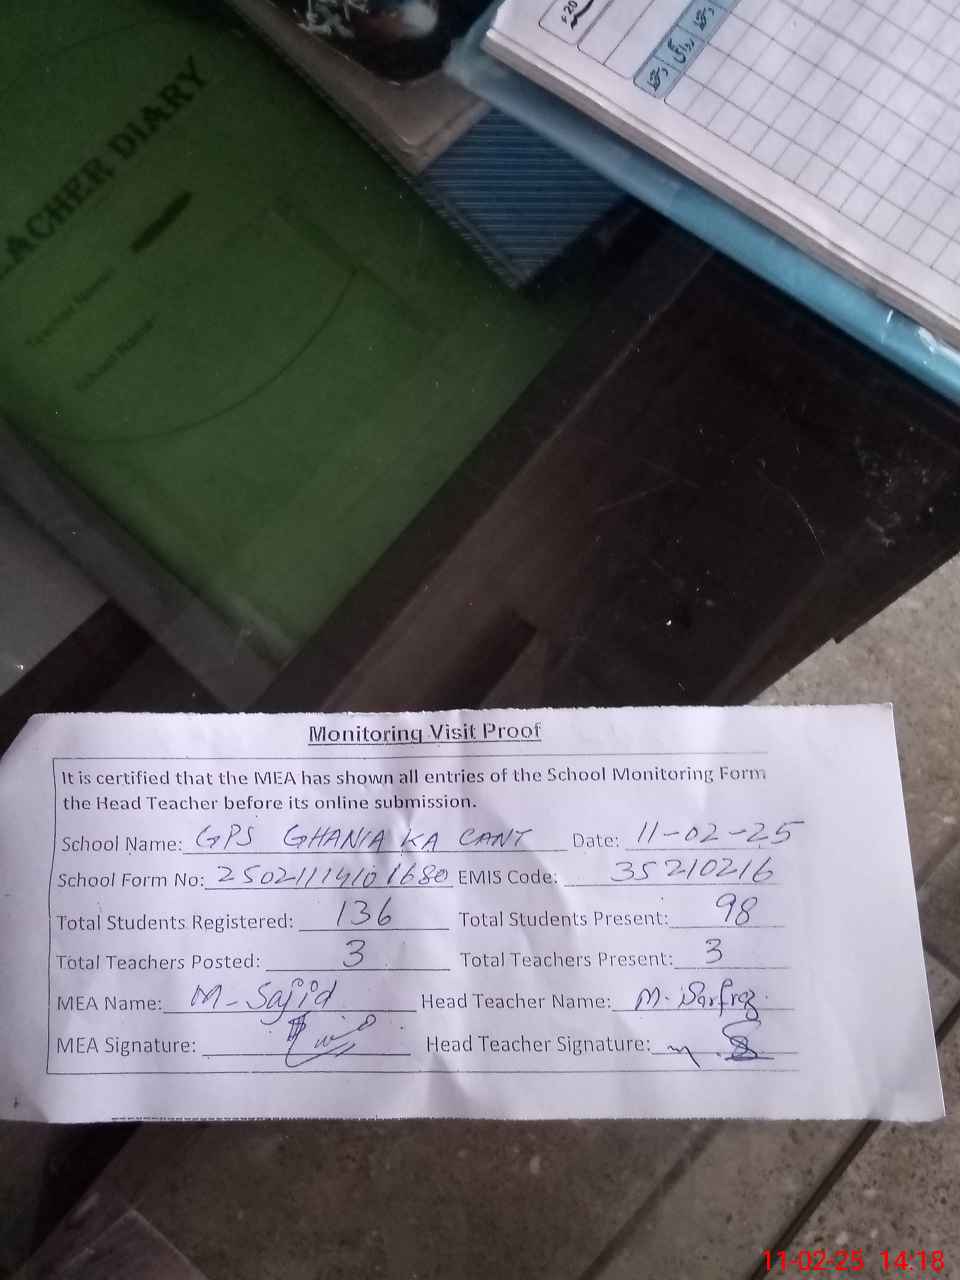 TEACHER DIARY
Teacher Name:
School Name:
Monitoring Visit Proof
It is certified that the MEA has shown all entries of the School Monitoring Form
the Head Teacher before its online submission.
School Name: GPS GHANIA KA CANT Date: 11-02-25
School Form No: EMIS Code: 35210216
Total Students Registered: 136 Total Students Present: 98
Total Teachers Posted: 3 Total Teachers Present: 3
MEA Name: M-Sajid Head Teacher Name: M. Sarfraz
MEA Signature: Head Teacher Signature:
11-02-25 14:18